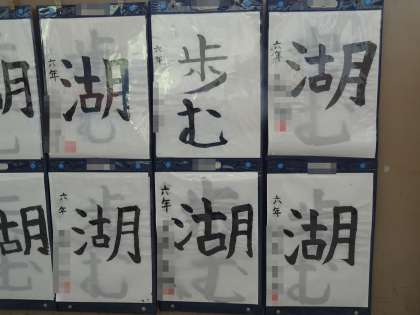 湖
六年
湖
六年
歩む
六年
湖
湖
六年
湖
六年
湖
六年
湖